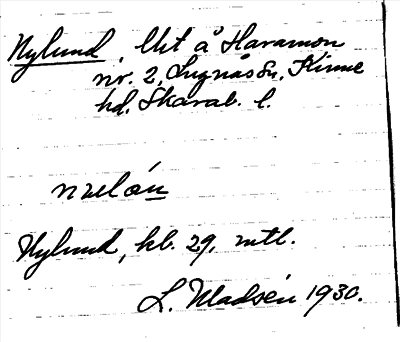 Nylund, Utt å Haramon
nr. 2, Lugnås sn, Kinne
hd, Skarab. l.
Nylund, kb. 29, mtl.
L. Madsén 1930.